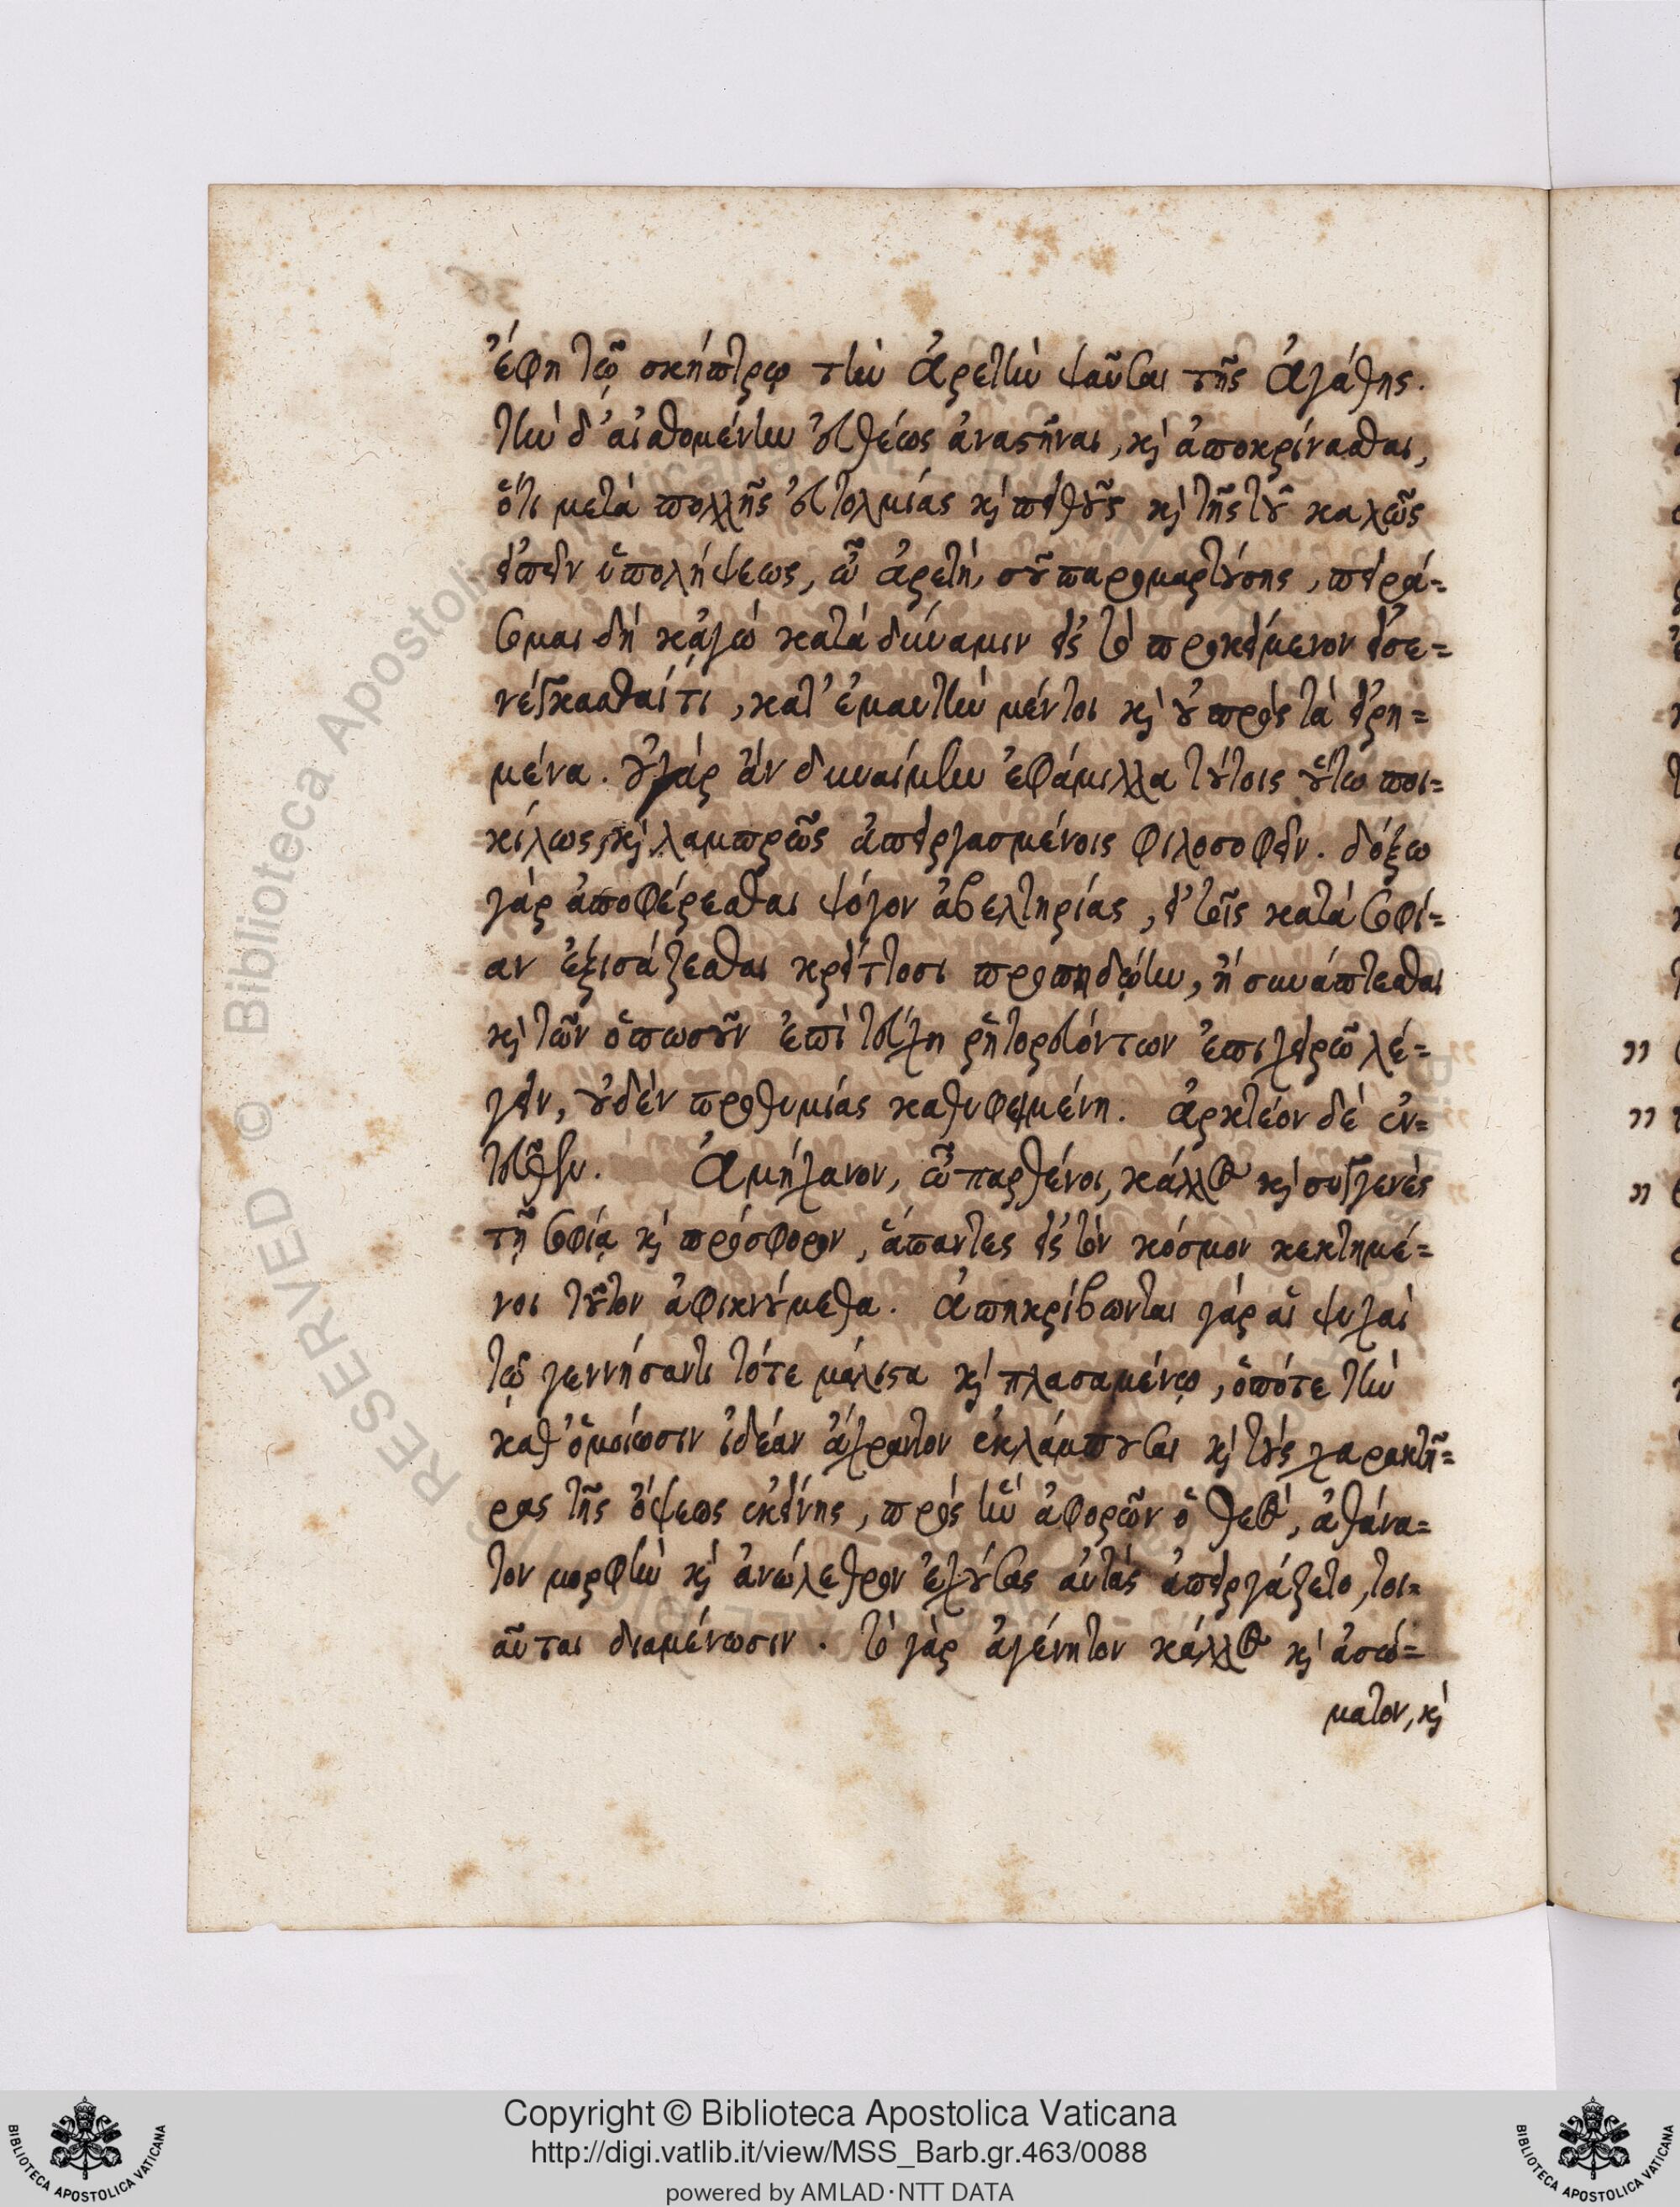 ἔφη τῷ σκήπτρῳ τὴν Ἀρετὴν ψαῦσαι τῆς Ἀγάθης.
τὴν δ' αἰσθομένην εὐθέως ἀναστῆναι, καὶ ἀποκρίνασθαι,
ὅτι μετὰ πολλῆς εὐτολμίας καὶ πειθοῦς καὶ τῆς τοῦ καλῶς
εἰπεῖν ὑπολήψεως, ὦ ἀρετὴ, σοῦ παρομαρτούσης, πειρά=
σομαι δὴ κᾀγὼ κατὰ δύναμιν εἰς τὸ προκείμενον εἰσε=
νέγκασθαί τι, κατ' ἐμαυτὴν μέντοι καὶ οὐ πρὸς τὰ εἰρη=
μένα. οὐ γὰρ ἂν δυναίμην ἐφάμιλλα τούτοις οὕτω ποι=
κίλως, καὶ λαμπρῶς ἀπειργασμένοις φιλοσοφεῖν. δόξω
γὰρ ἀποφέρεσθαι ψόγον ἀβελτηρίας, εἰ τοῖς κατὰ σοφί=
αν ἐξισάζεσθαι κρείττοσι προπηδῴην, ἢ συνάπτεσθαι
καὶ τῶν ὁπωσοῦν ἐπὶ τεύχη ῥητορευόντων ἐπιχειρῶ λέ=
γειν, οὐδὲν προθυμίας καθυφειμένη. ἀρκτέον δὲ ἐν=
τεῦθεν. Ἀμήχανον, ὦ παρθένοι, κάλλος καὶ συγγενὲς
τῇ σοφίᾳ καὶ πρόσφορον, ἅπαντες εἰς τὸν κόσμον κεκτημέ=
νοι τοῦτον ἀφικνούμεθα. Ἀπηκρίβωνται γὰρ αἱ ψυχαὶ
τῷ γεννήσαντι τότε μάλιστα καὶ πλασαμένῳ, ὁπότε τὴν
καθ' ὁμοίωσιν ἰδέαν ἄχραντον ἐκλάμπουσαι καὶ τοὺς χαρακτῆ=
ρας τῆς ὄψεως ἐκείνης, πρὸς ἣν ἀφορῶν ὁ θεὸς, ἀθάνα=
τον μορφὴν καὶ ἀνώλεθρον ἐχούσας αὐτὰς ἀπειργάζετο, τοι=
αῦται διαμένωσιν. τὸ γὰρ ἀγένητον κάλλος καὶ ἀσώ=
ματον, καὶ
Copyright © Biblioteca Apostolica Vaticana
http://digi.vatlib.it/view/MSS_Barb.gr.463/0088
powered by AMLAD·NTT DATA